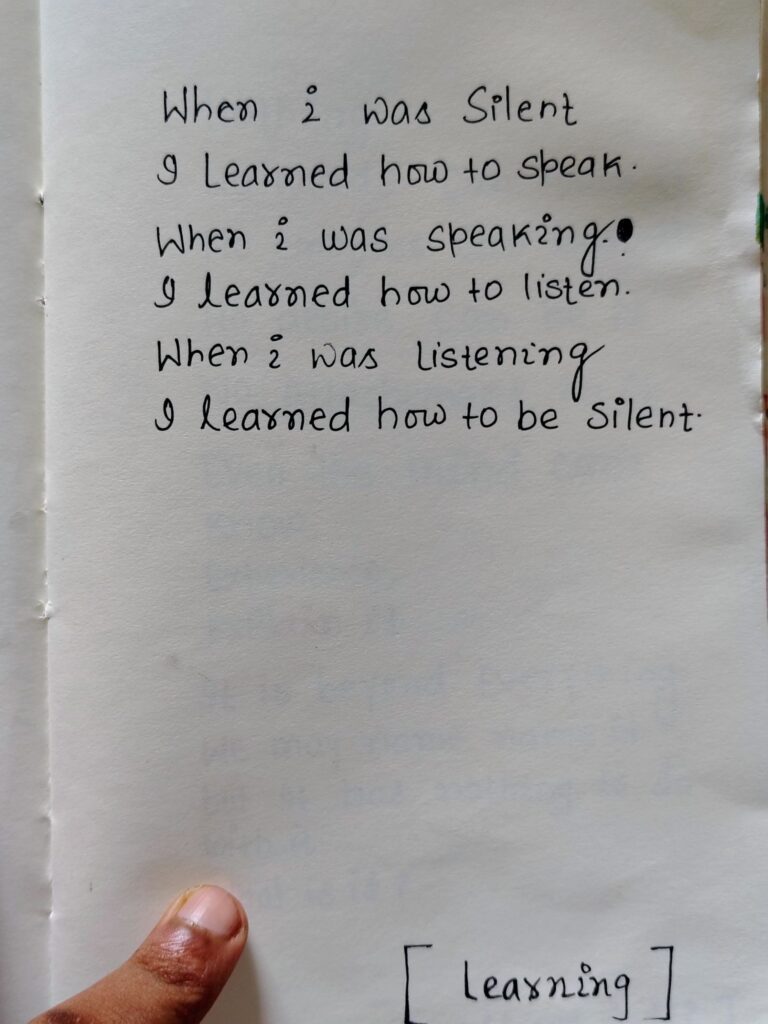 When i was Silent
I Learned how to speak.
When i was speaking.
I learned how to listen.
When i was Listening
I learned how to be silent.
[ Learning ]